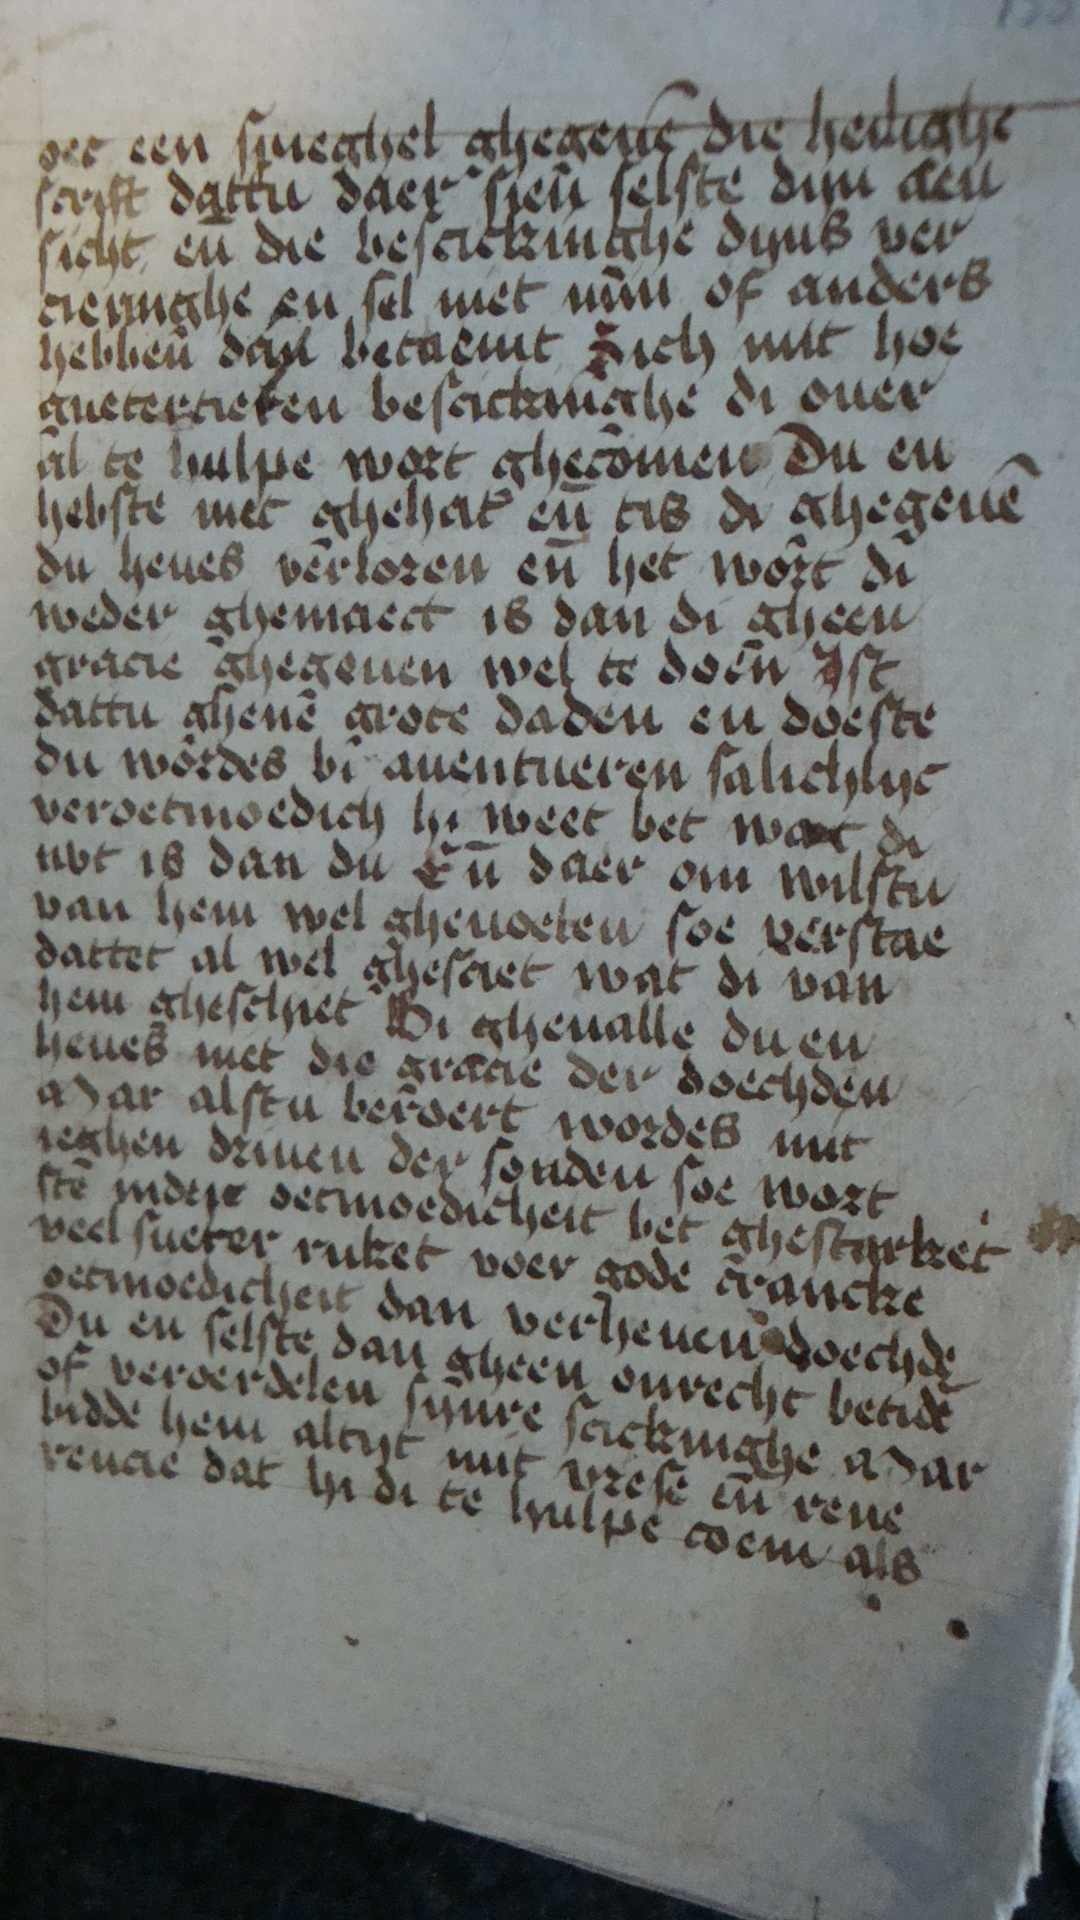 oec een spieghel ghegeuē die heilighe
scrift dattu daer sien̄ selste dijn aen
sicht en̄ die bescickinghe dijns ver
cieringhe en sel niet mīn of anders
hebben̄ dan betaemt Sich mit hoe
guetertieren bescickinghe di ouer
al te hulpe wort ghecōmen Du en
hebste niet ghehat en̄ tis di ghegeuē
du heues verloren en̄ het wort di
weder ghemaect is dan di gheen
gracie ghegeuen wel te doen̄ Ist
dattu ghenē grote daden en doeste
du wordes bi auentueren salichlijc
veroetmoedich hi weet bet wat di
nut is dan du En̄ daer om wilstu
van hem wel gheuoelen soe verstae
dattet al wel ghesciet wat di van
hem gheschiet Bi gheualle du en
heues niet die gracie der doechden
Mar alstu beroert wordes mit
ieghen driuen der sonden soe wort
stē indie oetmoedicheit bet ghestarket
veel sueter ruket voer gode crancke
oetmoedicheit dan verheuen doechde
Du en selste dan gheen onrecht betidē
of veroerdelen sijnre scickinghe Mar
bidde hem altijt mit vrese en̄ reue
rencie dat hi di te hulpe coem als